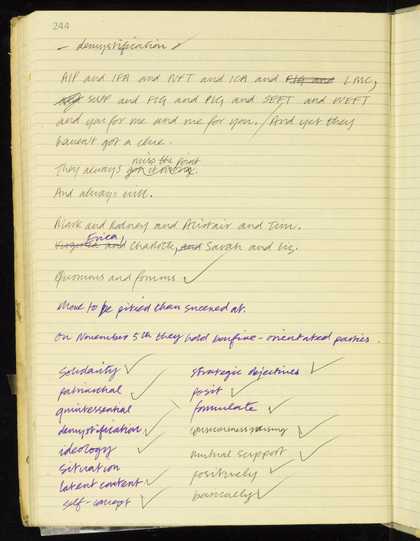 244
- demystification ✓
AIP and IFA and NFT and ICA and FIG and LMC,
and SWP and FIG and PLG and SEFT and WEFT
and you for me and me for you. / And yet they
haven't got a clue.
miss the point
They always got it wrong.
And always will.
Mark and Rodney and Alistair and Tim.
Erica,
Virginia and Charlotte, and Sarah and
Quorums and forums ✓
More to be pitied than sneered at.
On November 5th they hold bonfire-orientated parties.
Solidarity ✓ strategic objectives ✓
patriarchal ✓ posit ✓
quintessential formulate ✓
demystification ✓ consciousness raising ✓
ideology ✓ mutual support ✓
situation positively ✓
latent content ✓ basically ✓
self-concept ✓